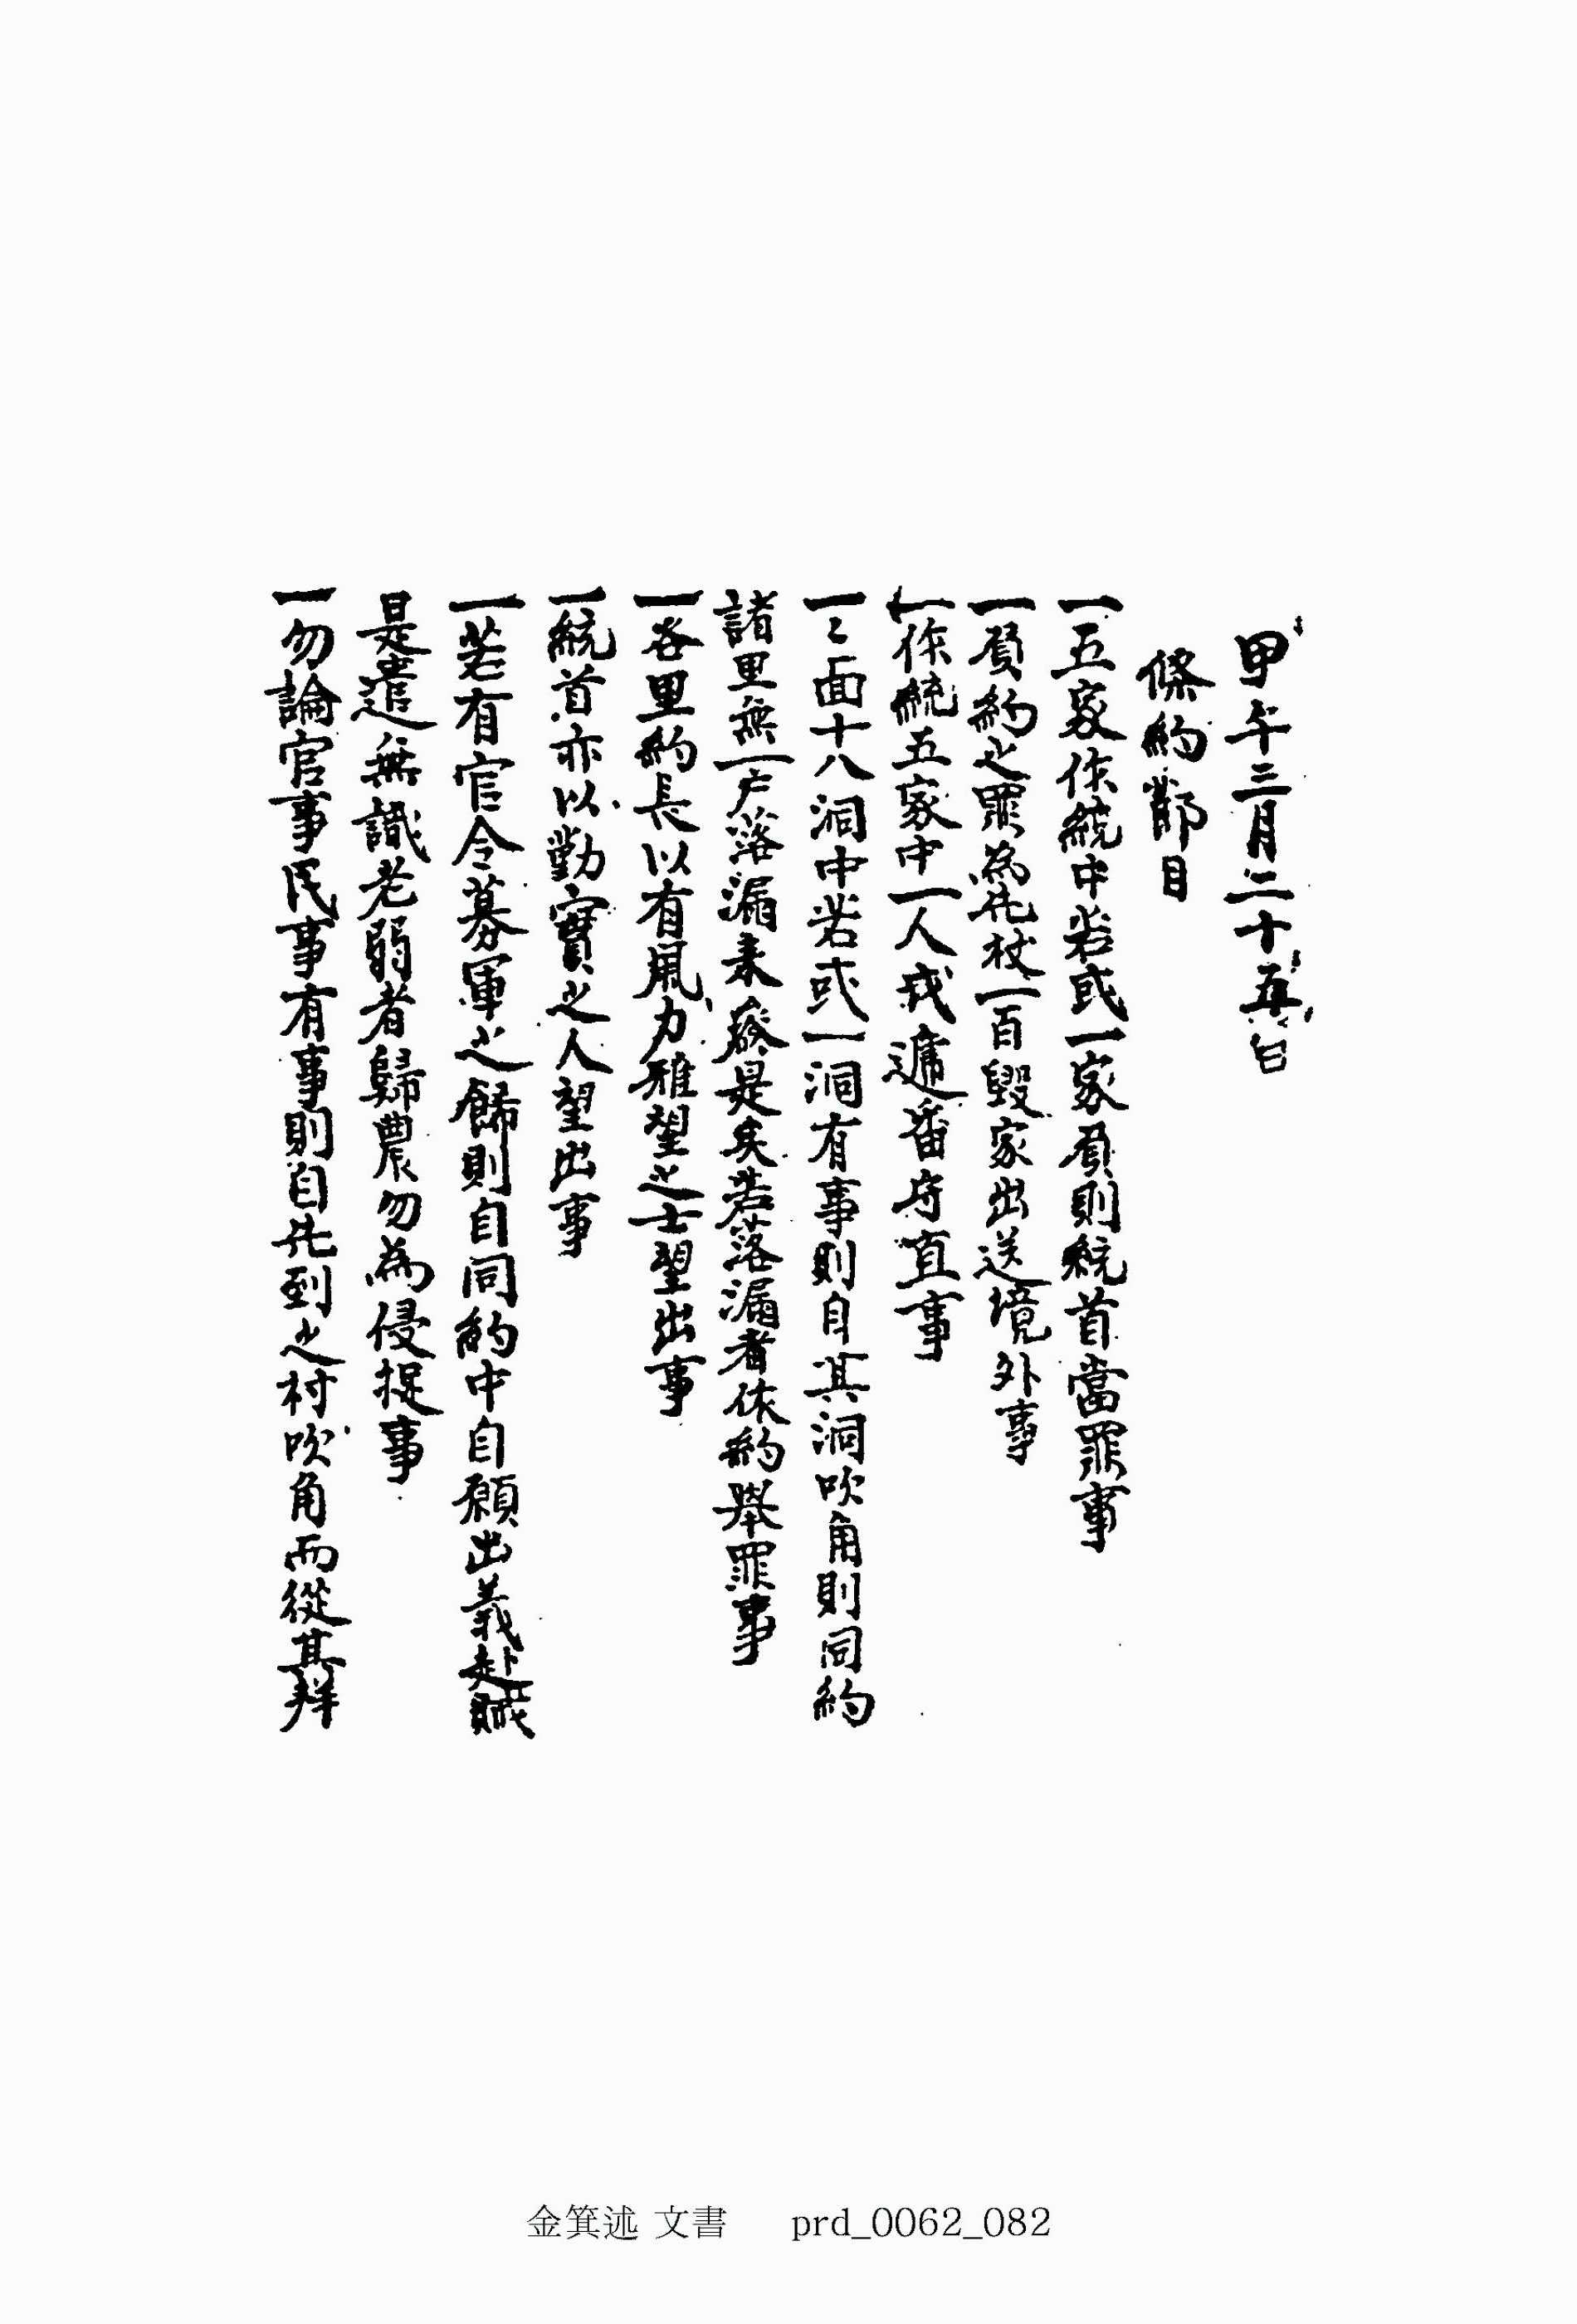 甲午三月二十五日
條約節目
一五家作統中若或一家負則統首當罪事
一負約之罪為先杖一百毀家出送境外事
一作統五家中一人或遞番守直事
一々面十八洞中若或一洞有事則自其洞吹角則同約
諸里無一戶落漏來發是矣若落漏者依約擧罪事
一各里約長以有風力雅望之士望出事
一統首亦以勤實之人望出事
一若有官令募軍之飭則自同約中自願出義赴賊
是遣無識老弱者歸農勿為侵捉事
一勿論官事民事有事則自先到之村吹角而從其
金箕述 文書 prd_0062_082